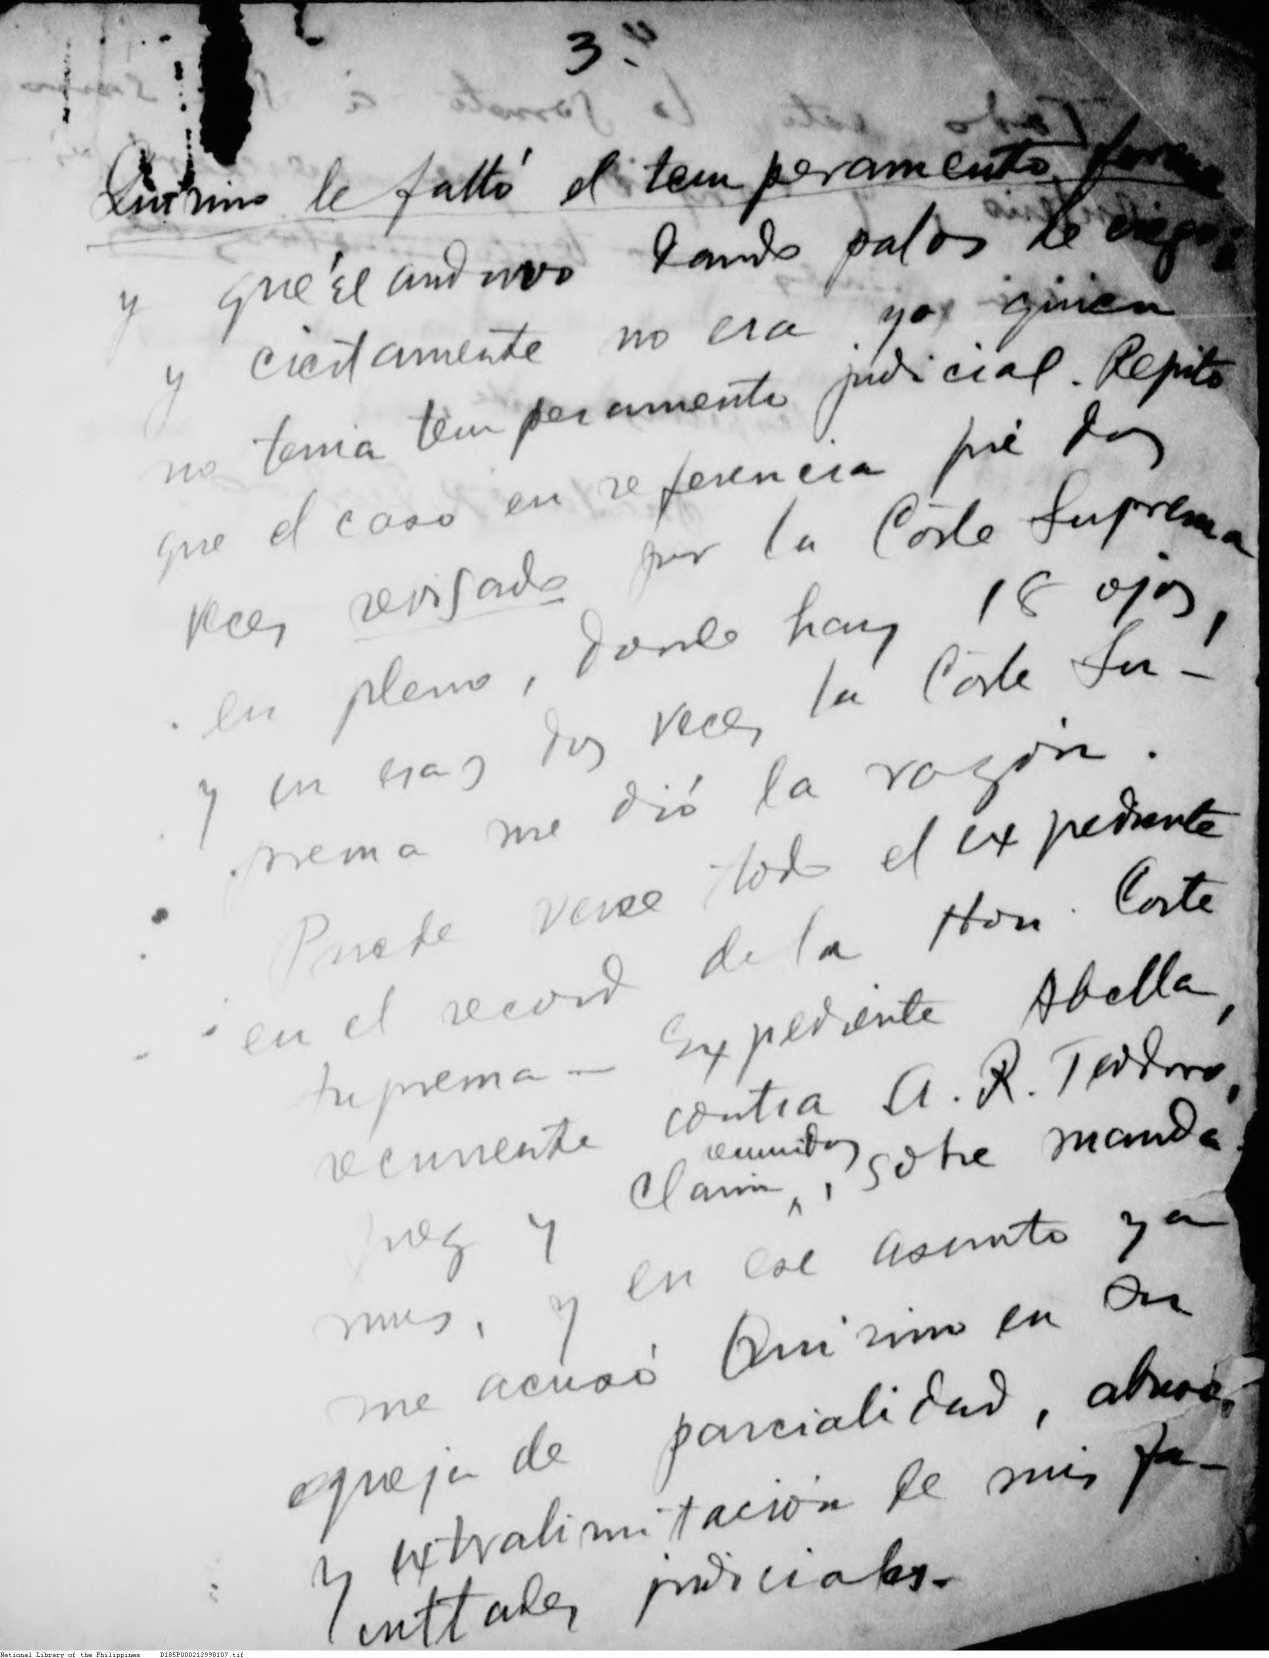 3."
Quirino le faltó el temperamento
y que él anduvo dando palos de ciego;
y ciertamente no era yo quien
no tenia temperamento judicial. Repito
que el caso en referencia fué dos
veces revisado por la Córte Suprema
en pleno, donde hay 18 ojos,
y en esas dos veces la Córte Su-
prema me dió la razón.
Puede verse todo el expediente
en el record de la Hon. Corte
Suprema — Expediente Abella,
recurrente contra A. R. Teodoro,
Juez y Clarin, recurridos, sobre manda-
mus, y en ese asunto ya
me acusó Quirino en su
queja de parcialidad, abuso,
y extralimitación de mis fa-
cultades judiciales.-
National Library of the Philippines D185P000212998107.tif